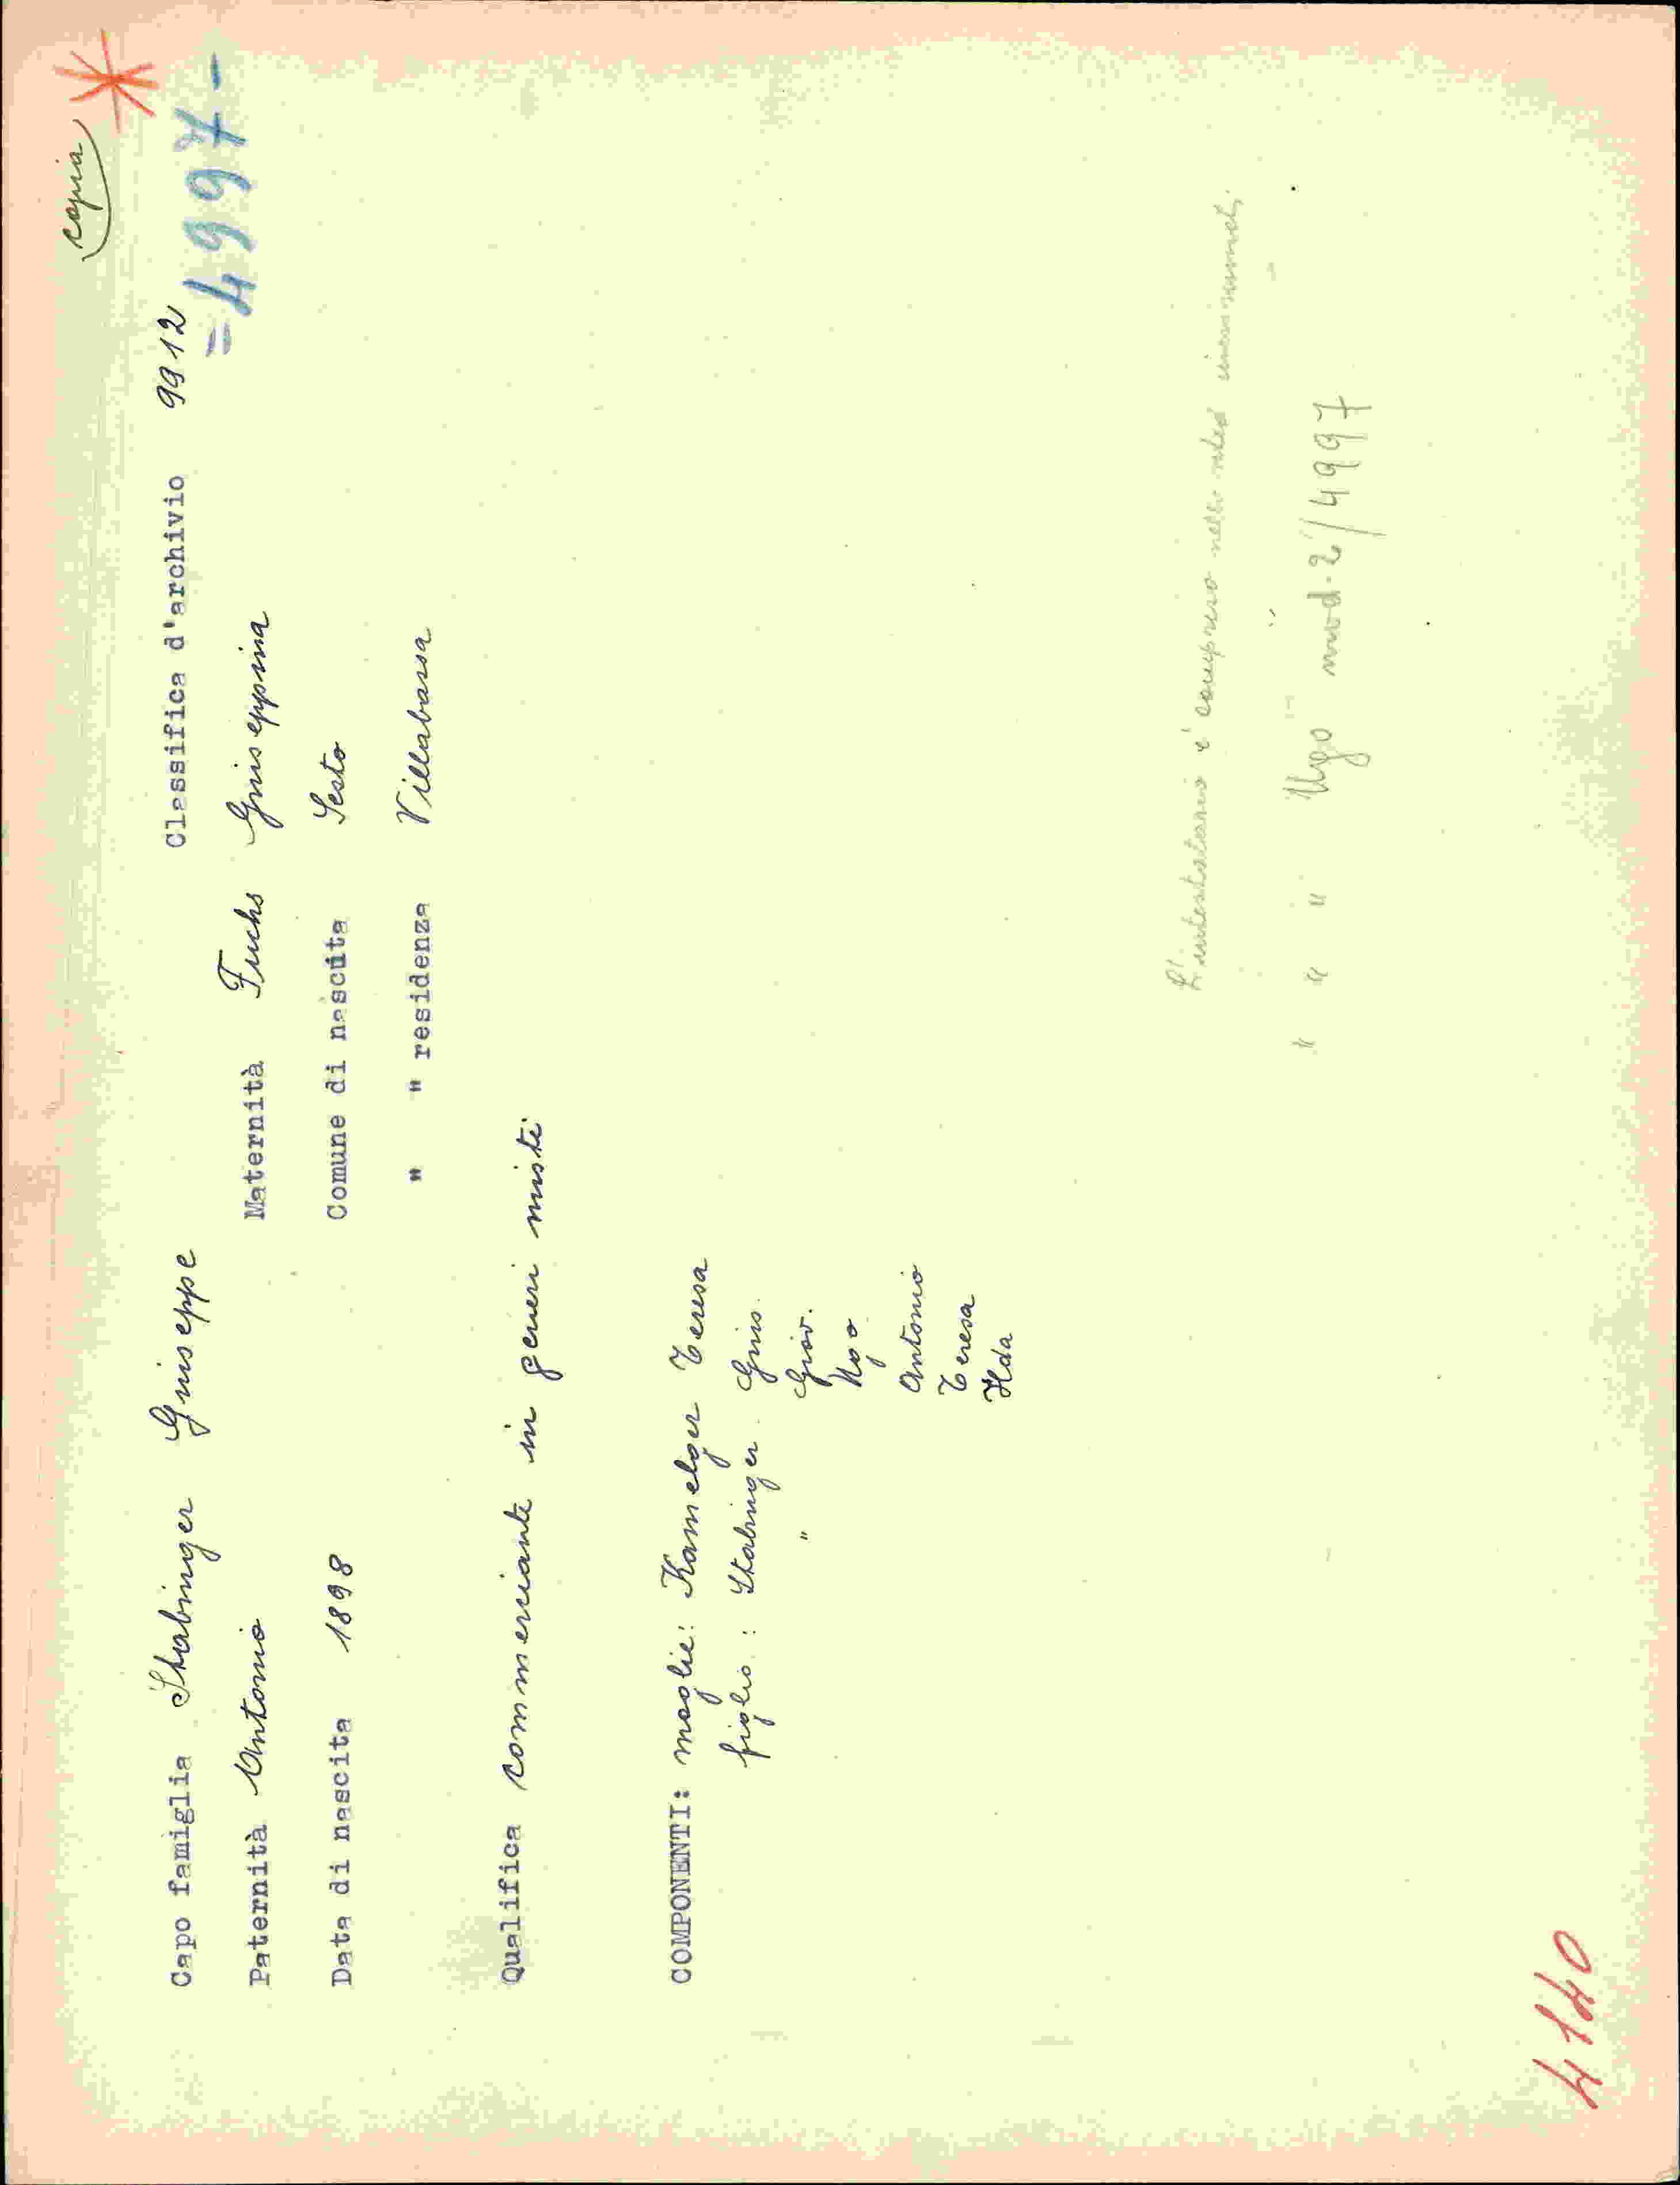 copia
Capo famiglia Stabinger Giuseppe Classifica d'archivio 9912
=4997-
Paternità Antonio Maternità Fuchs Giuseppina
Data di nascita 1898 Comune di nascita Sesto
" " residenza Villabassa
Qualifica commerciante in generi misti
COMPONENTI: moglie: Kamelger Teresa
figlio: Stabinger Gius.
" Giov.
Ugo
Antonio
Teresa
Ilda
L'intestatario è compreso
" " " Ugo mod. 2/4997
4140